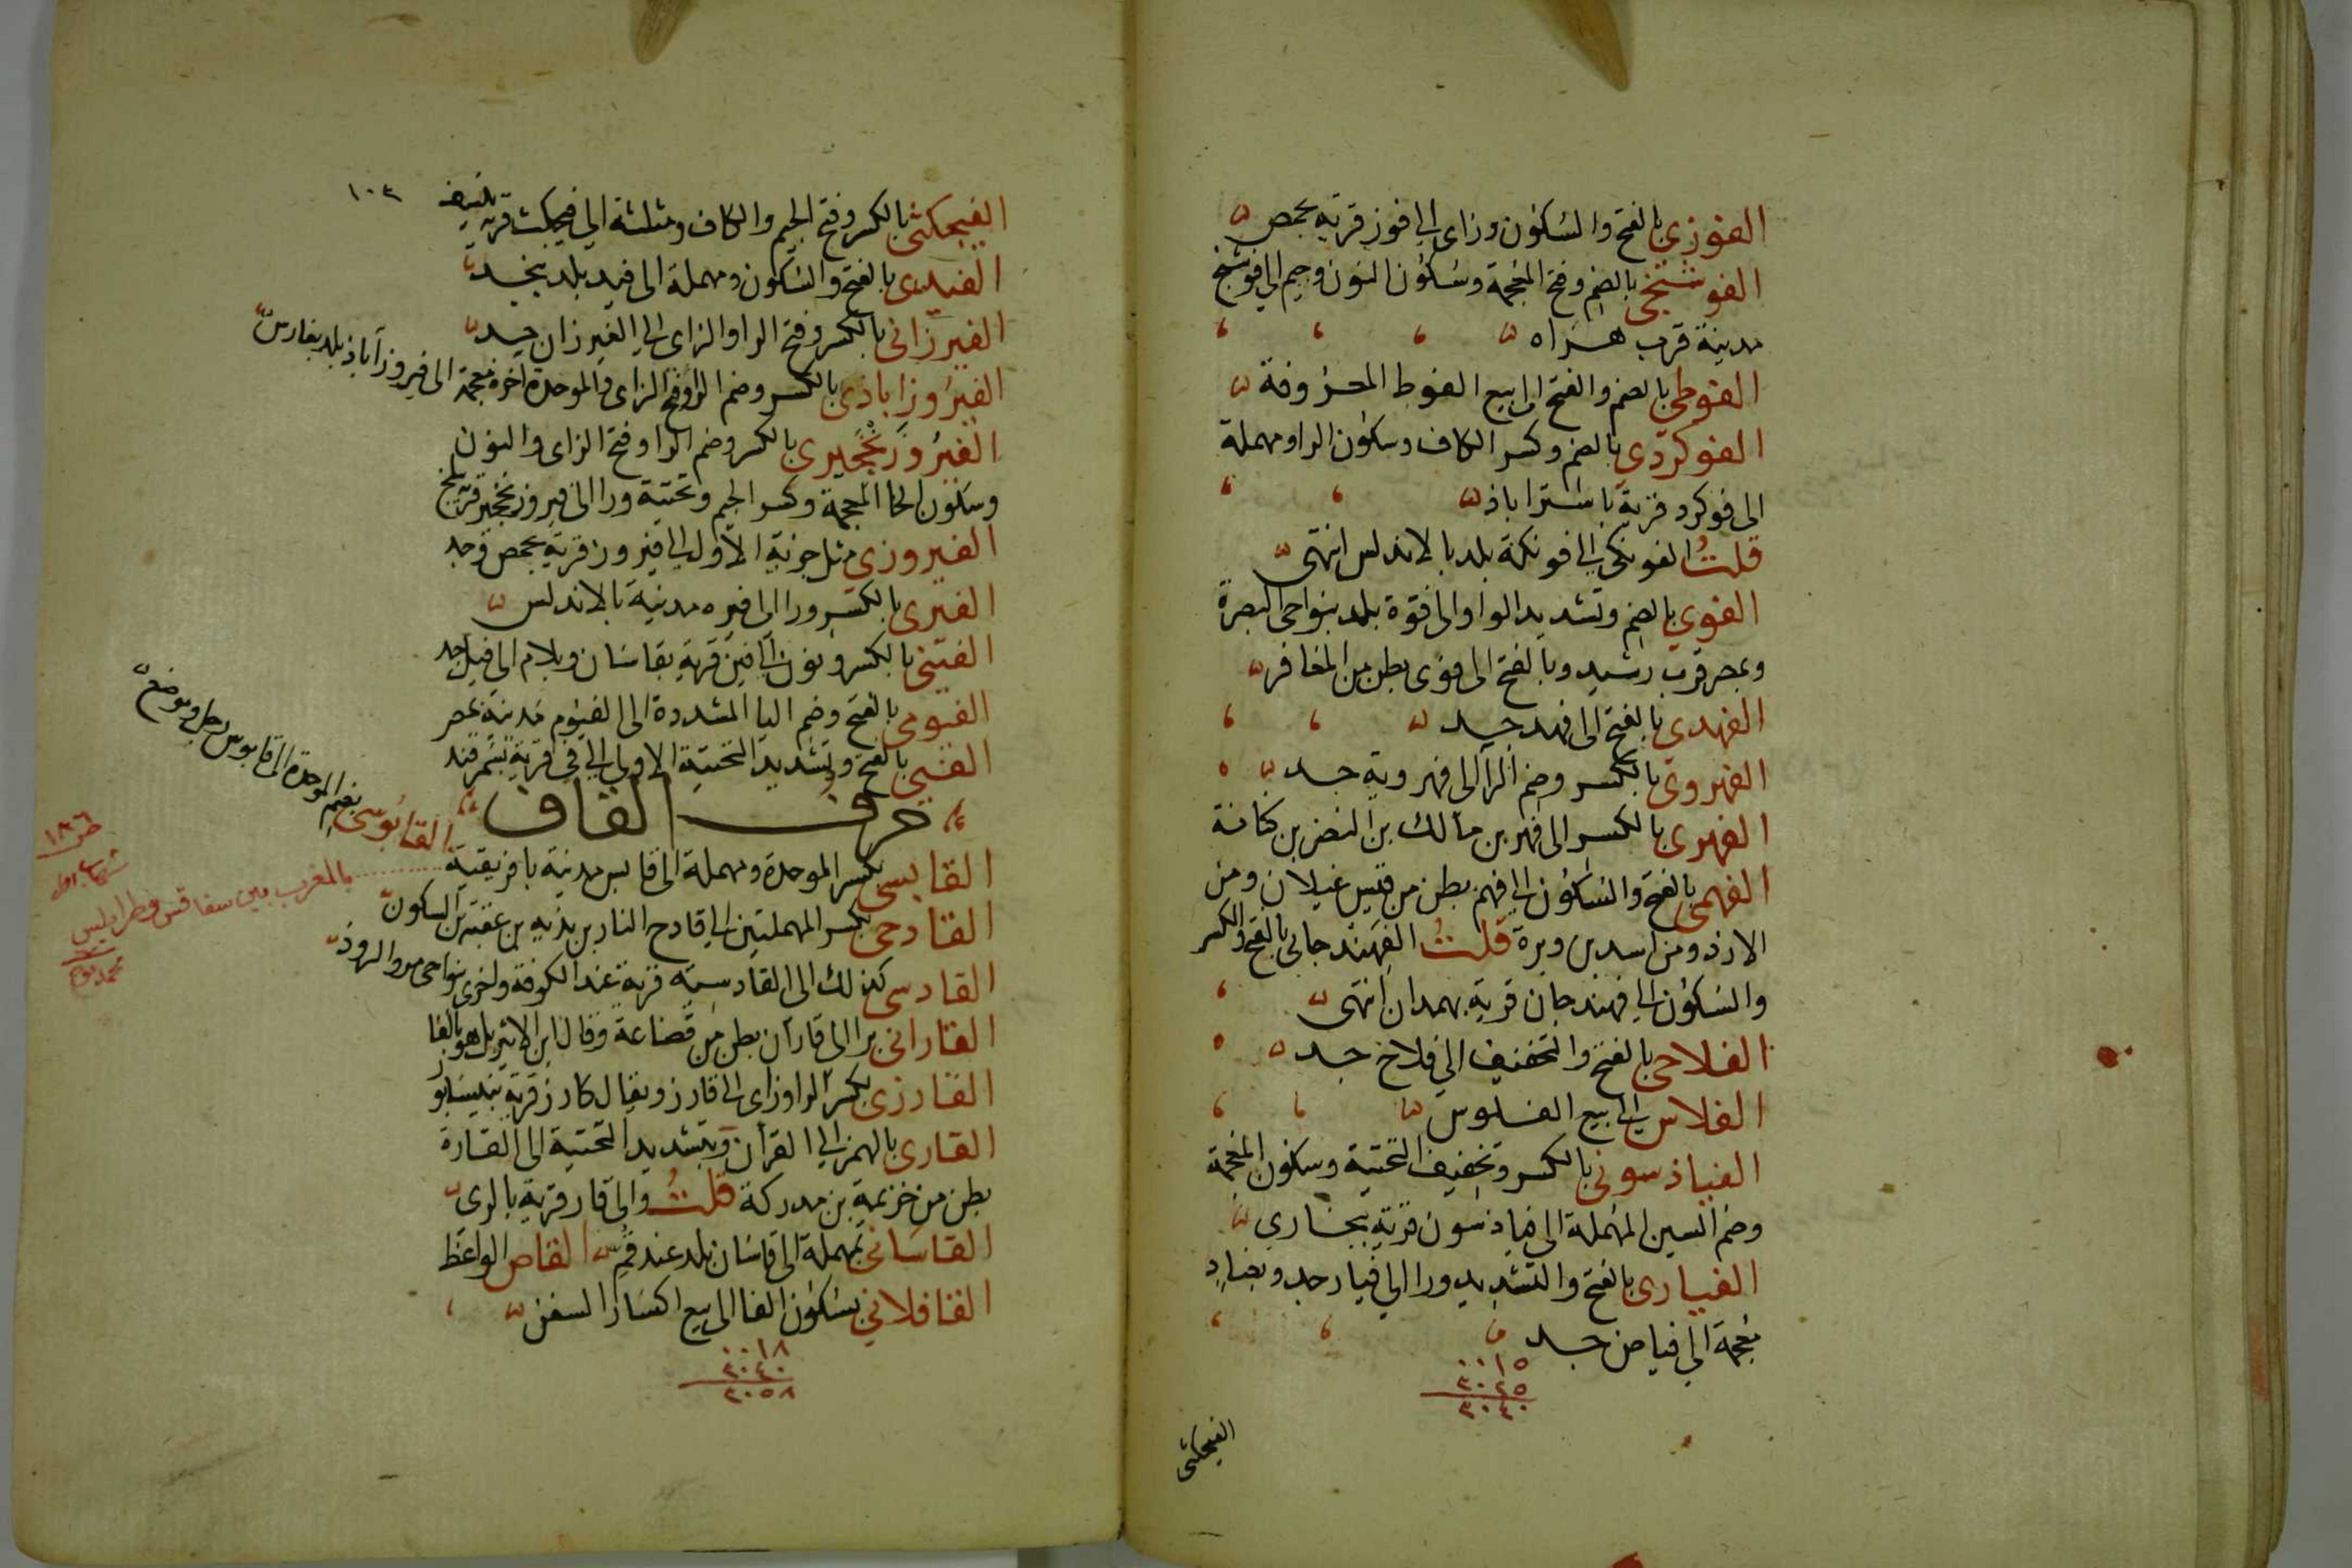 الفوزي بالفتح والسكون وزاى الى فوز قرية بحمص
الفوشنجي بالضم وفتح المعجمة وسكون النون وجيم الى فوشنج
مدينة قرب هراه
الفوطي بالضم والفتح الى بيع الفوط المعروفة
الفوكردي بالضم وكسر الكاف وسكون الرا ومهملة
الى فوكرد قرية باستراباذ
قلت الفونكى الى فونكة بلد بالاندلس انتهى
الفوي بالضم وتشديد الواو الى فوة بلد بنواحى البصرة
وبمصر قرب رشيد وبالفتح الى فوى بطن من المغافر
الفهدى بالفتح الى فهد جد
الفهروى بالكسر وضم الرا الى فهروية جد
الفهرى بالكسر الى فهر بن مالك بن النضر بن كنانة
الفهمى بالفتح والسكون الى فهم بطن من قيس غيلان ومن
الازد ومن اسد بن وبرة قلت الفهندجانى بالفتح والكسر
والسكون الى فهندجان قرية بهمدان انتهى
الفلاحى بالفتح والتخفيف الى فلاح جد
الفلاس الى بيع الفلوس
الفياذسونى بالكسر وتخفيف التحتية وسكون المعجمة
وضم السين المهملة الى فياذسون قرية ببخارى
الفيارى بالفتح والتشديد ورا الى فيار جد وبضاد
معجمة الى فياض جد
٠٠١٥
٣٠٢٥
٣٠٤٠
الفيجكثى
١٠٣
الفيجكثى بالكسر وفتح الجيم والكاف ومثلثة الى فيجكث قرية بنسف
الفيدى بالفتح والسكون ومهملة الى فيد بلد بنجد
الفيرزانى بالكسر وفتح الرا والزاى الى الفيرزان جد
الفيروزاباذى بالكسر وضم الرا وفتح الزاى والموحدة اخره معجمة الى فيروزآباذ بلد بفارس
الفيروزنخجيرى بالكسر وضم الرا وفتح الزاى والنون
وسكون الخا المعجمة وكسر الجيم وتحتية ورا الى فيروزنخجير قرية ببلخ
الفيروزى مثل جزئه الاول الى فيروز قرية بحمص وجد
الفيرى بالكسر ورا الى فيره مدينة بالاندلس
الفينى بالكسر ونون الى فين قرية بقاسان وبلام الى فيل جد
الفيومى بالفتح وضم اليا المشددة الى الفيوم مدينة بمصر
الفيى بالفتح وتشديد التحتية الاولى الى فى قرية بسمرقند
حرف القاف
القابوسى بضم الموحدة الى قابوس رجل وموضع
القابسى بكسر الموحدة ومهملة الى قابس مدينة بافريقية
بالمغرب بين سفاقس وطرابلس
القادحى بكسر المهملتين الى قادح النار بن بذيه بن عقبة بن السكون
القادسى كذلك الى القادسية قرية عند الكوفة واخرى بنواحى مرو الروذ
القارانى برا الى قاران بطن من قضاعة وقال ابن الاثير بل هو بالفا
القارزى بكسر الرا وزاى الى قارز ويقال كارز قرية بنيسابور
القارى بالهمز الى القرآن وبتشديد التحتية الى القارة
بطن من خزيمة بن مدركة قلت والى قار قرية بالرى
القاسانى بمهملة الى قاسان بلد عند قم القاص الواعظ
القافلانى بسكون الفا الى بيع اكسار السفن
٠٠١٨
٣٠٤٠
٣٠٥٨